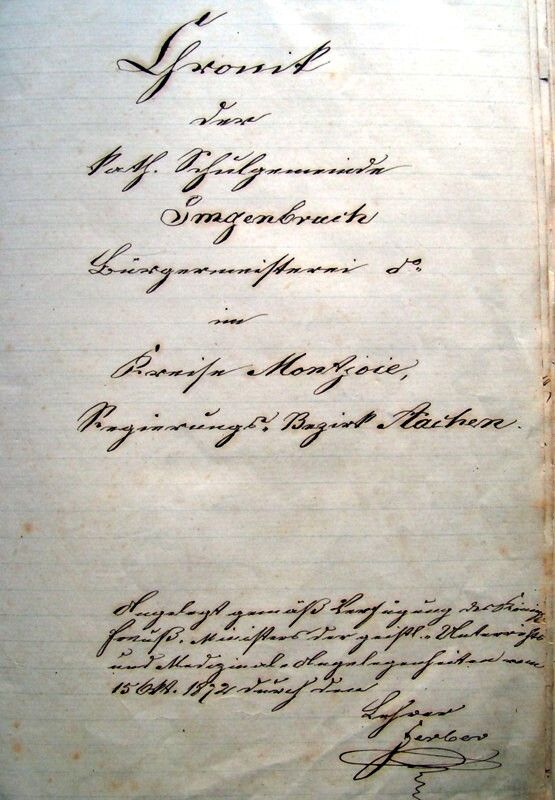 Chronik
der
kath. Schulgemeinde
Imgenbruch
Bürgermeisterei do
im
Kreise Montjoie,
Regierungs-Bezirk Aachen.
Angelegt gemäß Verfügung des Königl.
Preuß. Ministers der geistl.- Unterrichts
und Medizinal-Angelegenheiten vom
15 Okt. 1872 durch den
Lehrer
Ferber